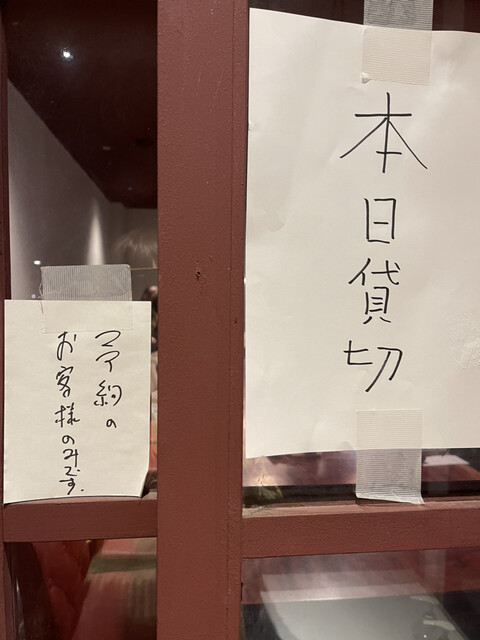 本日貸切
予約の
お客様のみです。